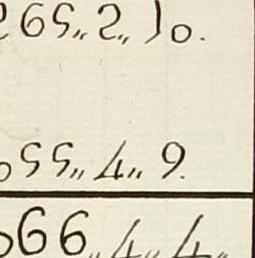 265„ 2„ 10.
55„ 4„ 9.
66„ 4„ 4„